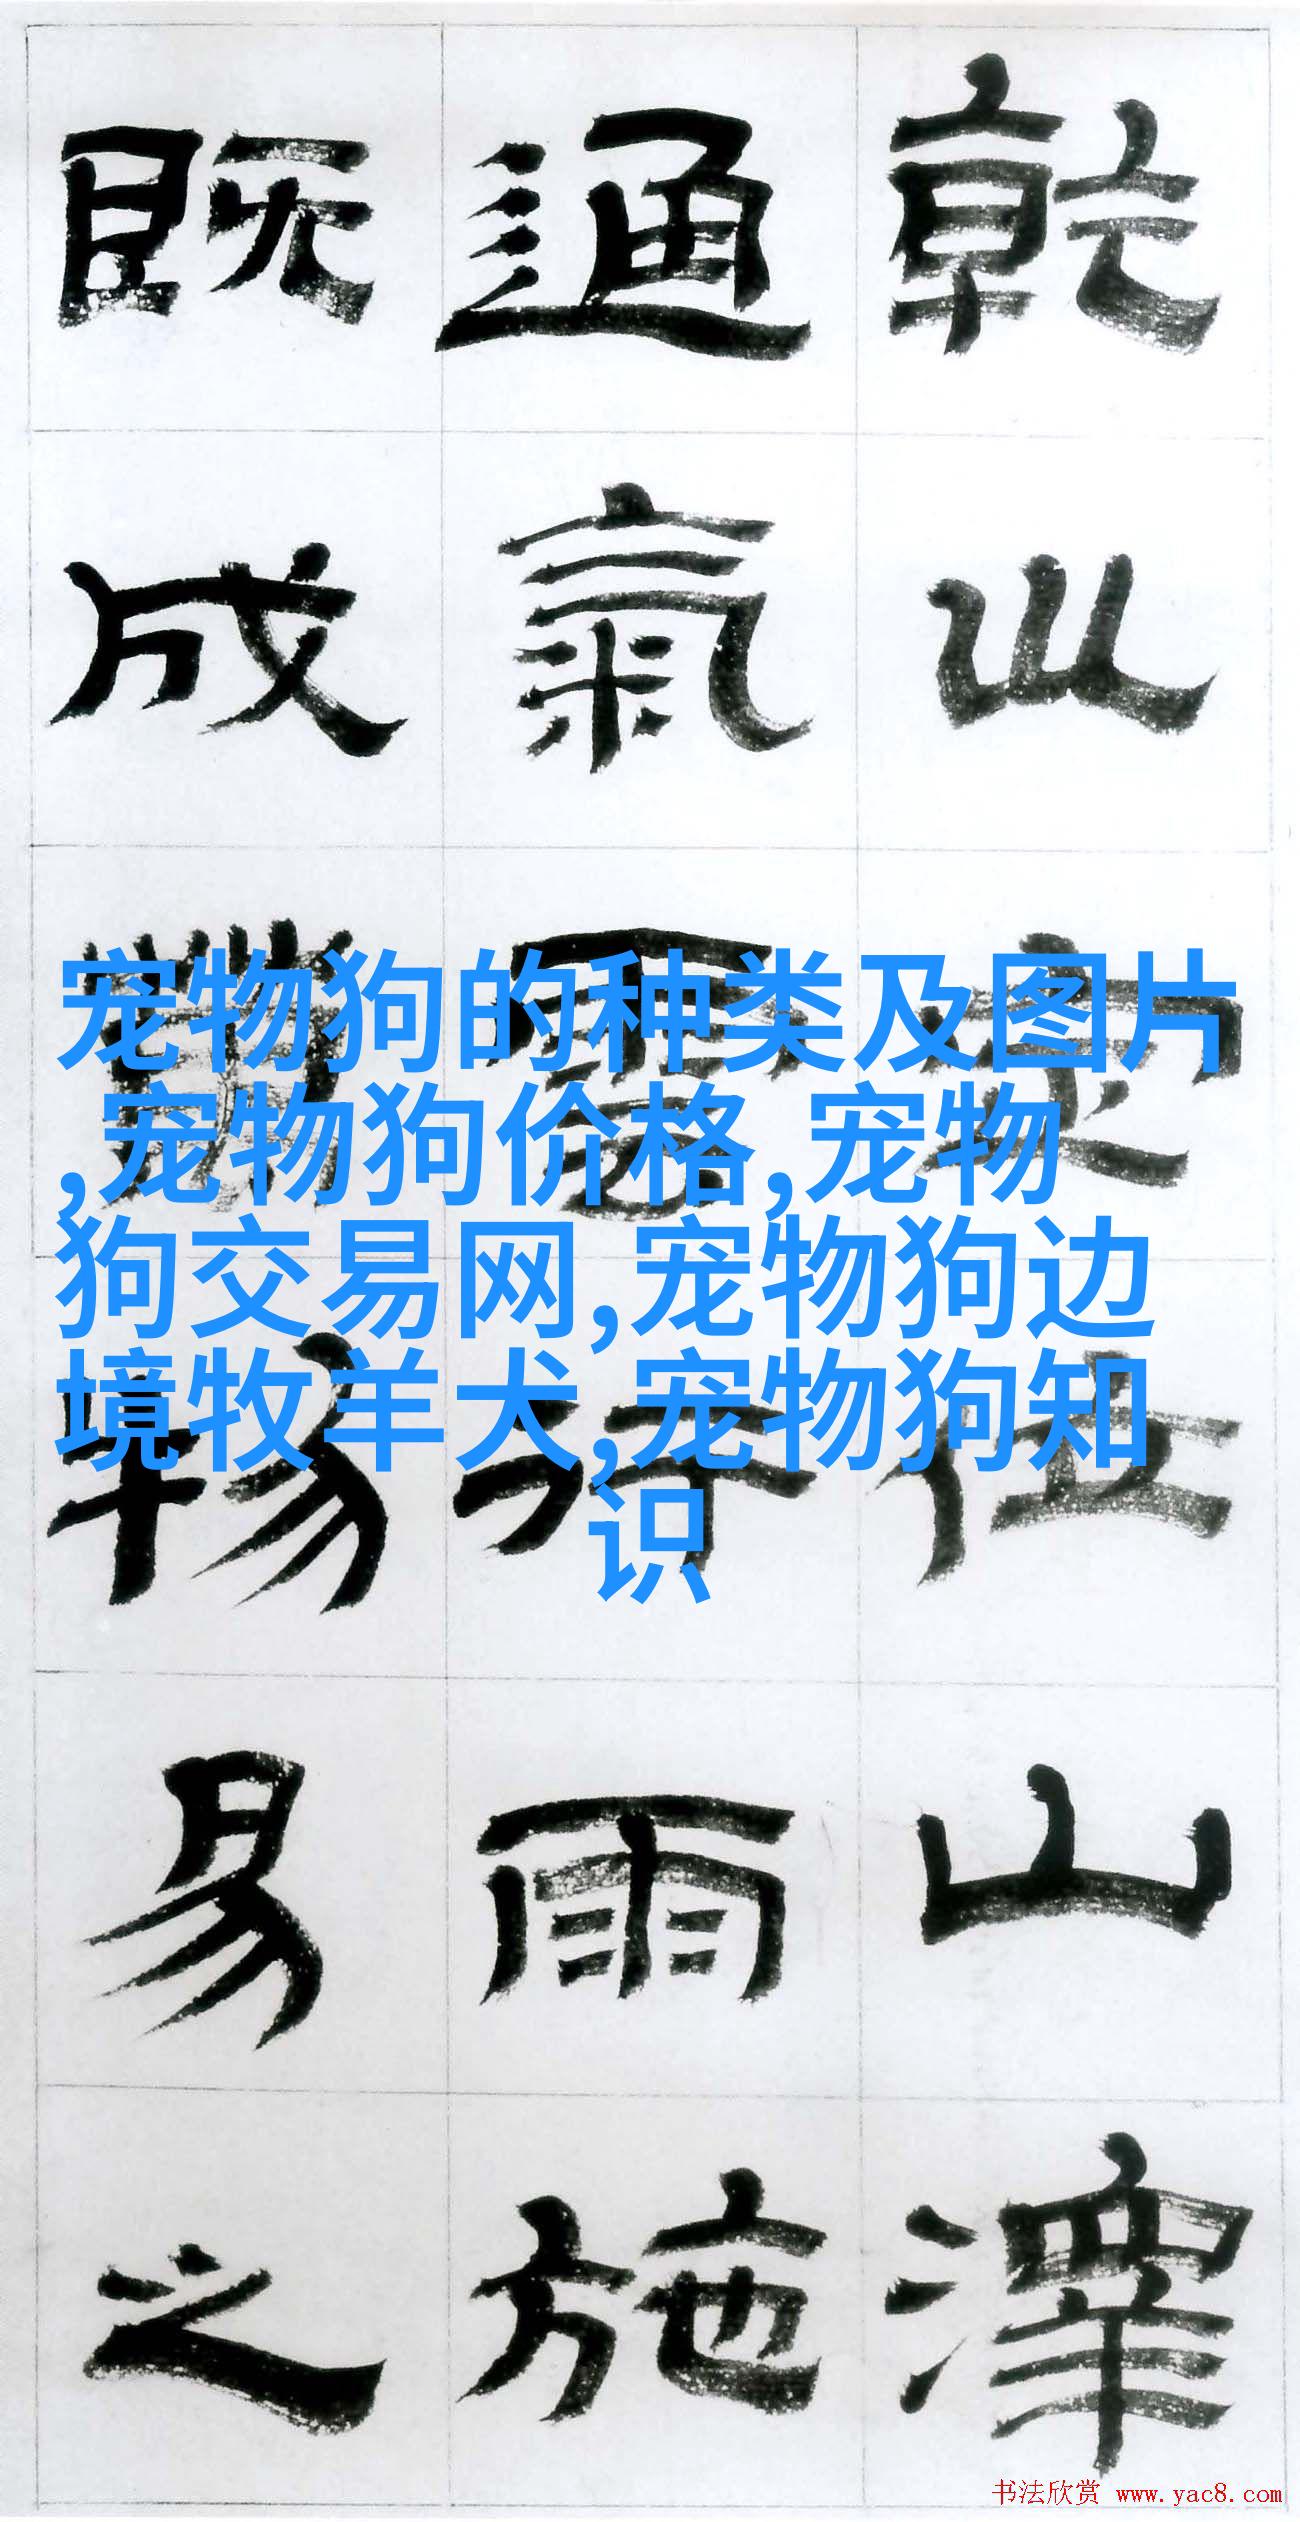 乾巛定位山澤
通氣雲行雨施
既成萬物易之
宠物狗的种类及图片
,宠物狗价格,宠物
狗交易网,宠物狗边
境牧羊犬,宠物狗知
识
书法欣赏 www.yac8.com